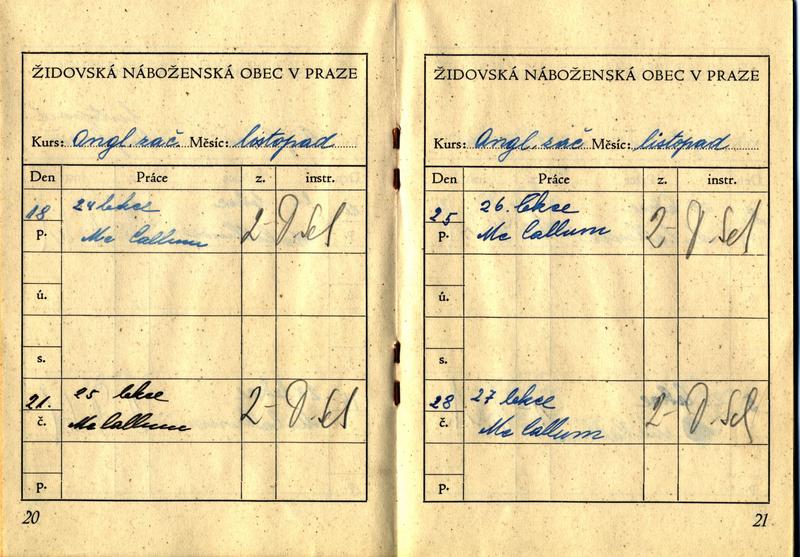 ŽIDOVSKÁ NÁBOŽENSKÁ OBEC V PRAZE
Kurs: Angl. zač. Měsíc: listopad
Den Práce z. instr.
18 24 lekce
P. Mc Callum 2-
ú.
s.
21. 25 lekce
č. Mc Callum 2-
P.
20
ŽIDOVSKÁ NÁBOŽENSKÁ OBEC V PRAZE
Kurs: Angl. zač. Měsíc: listopad
Den Práce z. instr.
25 26. lekce
P. Mc Callum 2-
ú.
s.
28 27 lekce
č. Mc Callum 2-
P.
21